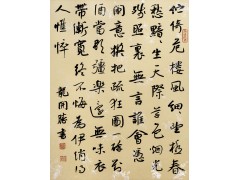 佇倚危樓風細々望極春
愁黯々生天際草色烟光
殘照裏無言誰會憑
闌意擬把疏狂圖一醉對
酒當歌強樂還無味衣
帶漸寬終不悔為伊消得
人憔悴
龍開勝書